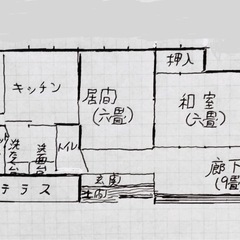 キッチン
居間
(六畳)
押入
和室
(六畳)
洗面台
トイレ
テラス
玄関
土間
廊下
(9畳